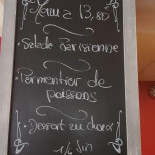 Menu 13,80
- Salade Parisienne
- Parmentier de
poissons
- Dessert au choix
1/4 Vin